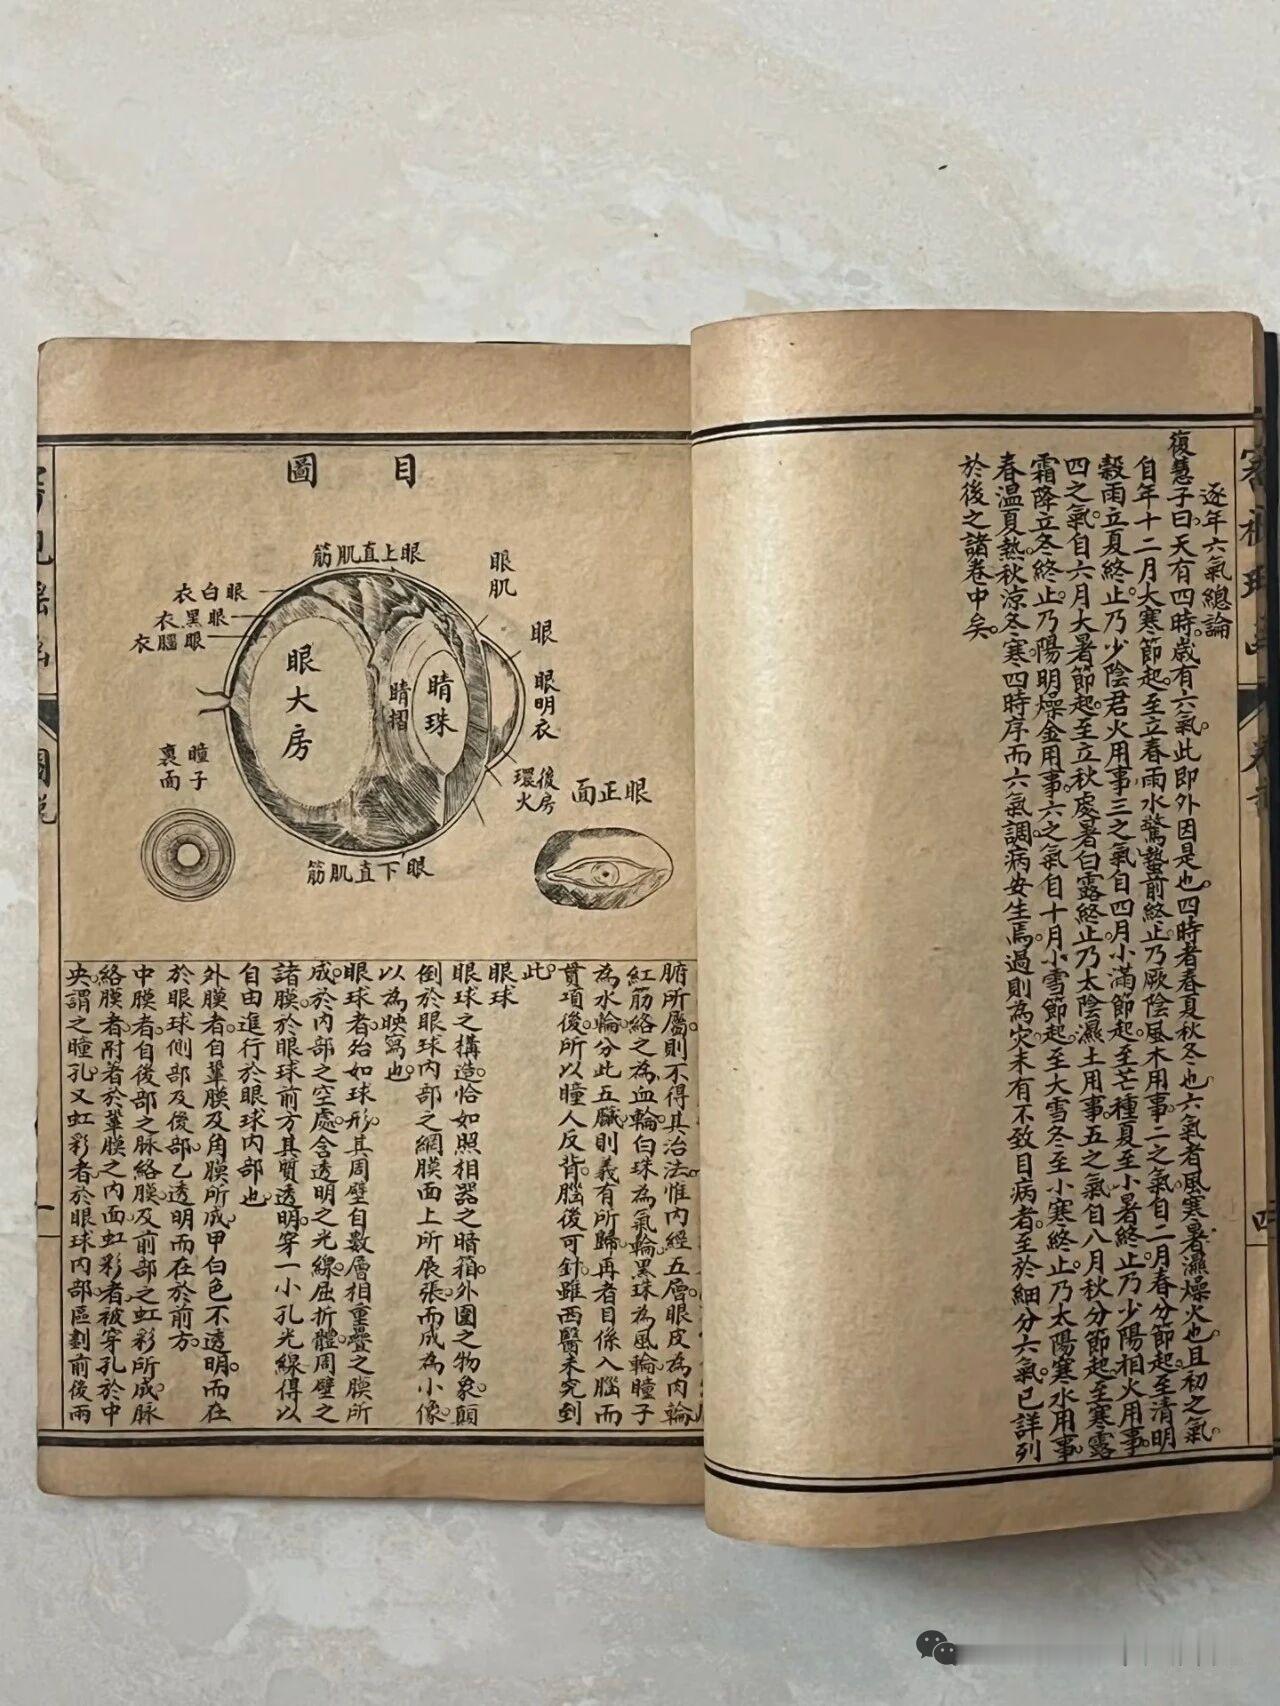 逐年六氣總論
復慧子曰。天有四時。歲有六氣。此即外因是也。四時者春夏秋冬也。六氣者風寒暑濕燥火也。且初之氣。
自年十二月大寒節起。至立春雨水驚蟄前終止。乃厥陰風木用事。二之氣。自二月春分節起。至清明
穀雨立夏終止。乃少陰君火用事。三之氣。自四月小滿節起。至芒種夏至小暑終止。乃少陽相火用事。
四之氣。自六月大暑節起。至立秋處暑白露終止。乃太陰濕土用事。五之氣。自八月秋分節起。至寒露
霜降立冬終止。乃陽明燥金用事。六之氣。自十月小雪節起。至大雪冬至小寒終止。乃太陽寒水用事。
春溫夏熱。秋涼冬寒。四時序而六氣調。病安生焉。過則為災。未有不致目病者。至於細分六氣。已詳列
於後之諸卷中矣。
四
目圖
眼上直肌筋
眼肌
眼白衣
眼黑衣
眼腦衣
眼
眼明衣
眼大房
睛摺
睛珠
瞳子裏面
後房環火
眼正面
眼下直肌筋
腑所屬。則不得其治法。惟內經五層。眼皮為肉輪
紅筋絡之為血輪。白珠為氣輪。黑珠為風輪。瞳子
為水輪。分此五臟。則義有所歸。再者目係入腦。而
貫項後。所以瞳人反背。腦後可針。雖西醫未究到
此。
眼球
眼球之構造。恰如照相器之暗箱。外圍之物象。顛
倒於眼球內部之網膜面上所展張。而成為小像。
以為映寫也。
眼球者。殆如球形。其周壁自數層相重疊之膜所
成。於內部之空處。含透明之光線屈折體。周壁之
諸膜。於眼球前方。其質透明。穿一小孔。光線得以
自由進行於眼球內部也。
外膜者。自鞏膜及角膜所成。甲白色不透明。而在
於眼球側部及後部。乙透明而在於前方。
中膜者。自後部之脉絡膜。及前部之虹彩所成。脉
絡膜者。附著於鞏膜之內面。虹彩者。被穿孔於中
央。謂之瞳孔。又虹彩者。於眼球內部。區劃前後兩
圖說
一